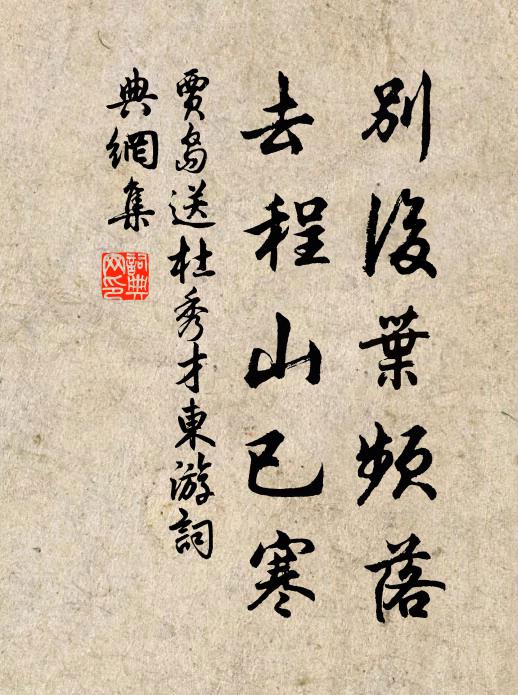 別後葉頻落
去程山已寒
賈島送杜秀才東游詞
典網集
詞典
网印